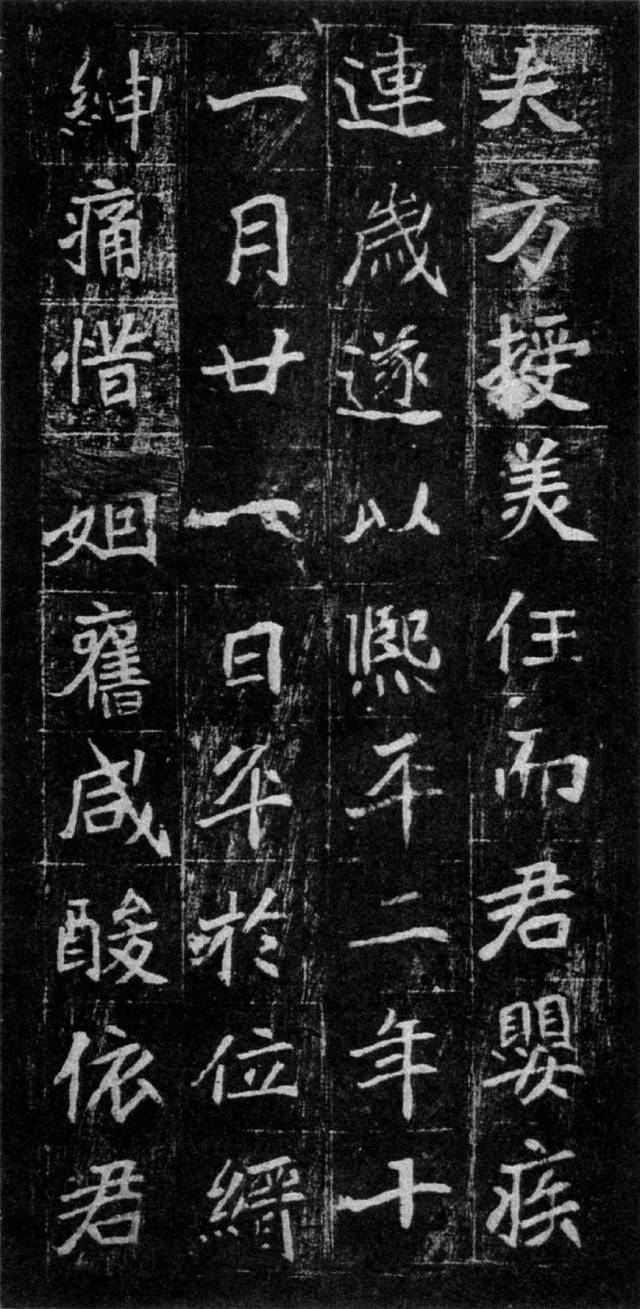 夫方授美任而君嬰疾
連歲遂以熙平二年十
一月廿一日卒於位縉
紳痛惜姻舊咸酸依君